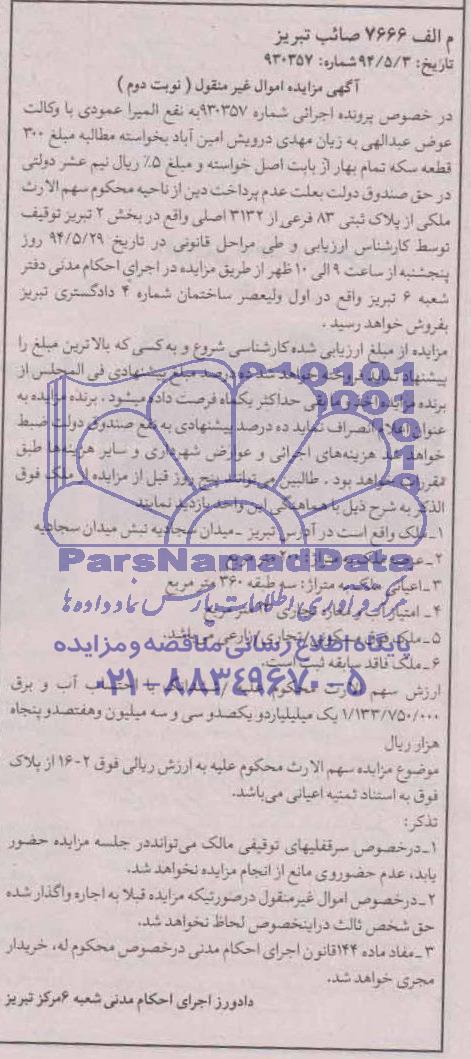 م الف ۷۶۶۶ صائب تبریز
تاریخ: ۹۴/۵/۳ شماره: ۹۳۰۳۵۷
آگهی مزایده اموال غیر منقول ( نوبت دوم )
در خصوص پرونده اجرائی شماره ۹۳۰۳۵۷به نفع المیرا عمودی با وکالت
عوض عبدالهی به زیان مهدی درویش امین آباد بخواسته مطالبه مبلغ ۳۰۰
قطعه سکه تمام بهار از بابت اصل خواسته و مبلغ ۵٪ ریال نیم عشر دولتی
در حق صندوق دولت بعلت عدم پرداخت دین از ناحیه محکوم سهم الارث
ملکی از پلاک ثبتی ۸۳ فرعی از ۳۱۳۲ اصلی واقع در بخش ۲ تبریز توقیف
توسط کارشناس ارزیابی و طی مراحل قانونی در تاریخ ۹۴/۵/۲۹ روز
پنجشنبه از ساعت ۹ الی ۱۰ ظهر از طریق مزایده در اجرای احکام مدنی دفتر
شعبه ۶ تبریز واقع در اول ولیعصر ساختمان شماره ۴ دادگستری تبریز
بفروش خواهد رسید .
مزایده از مبلغ ارزیابی شده کارشناسی شروع و به کسی که بالاترین مبلغ را
پیشنهاد نماید فروخته خواهد شد ده درصد مبلغ پیشنهادی فی المجلس از
برنده مزایده اخذ و مابقی حداکثر یکماه فرصت داده میشود . برنده مزایده به
عنوان اعلام انصراف نماید ده درصد پیشنهادی به نفع صندوق دولت ضبط
خواهد شد هزینه‌های اجرائی و عوارض شهرداری و سایر هزینه‌ها طبق
مقررات خواهد بود . طالبین می‌توانند پنج روز قبل از مزایده از ملک فوق
الذکر به شرح ذیل با هماهنگی این واحد بازدید نمایند
۱ـ ملک واقع است در آدرس تبریز ـ میدان سجادیه نبش میدان سجادیه
۲ـ عرصه ملک به متراژ: ۲۰۰ متر مربع
۳ـ اعیانی ملک به متراژ: سه طبقه ۳۶۰ متر مربع
۴ـ امتیاز آب و مغازه تجاری متر مربع
۵ـ ملک فوق مسکونی/تجاری/زراعی می‌باشد.
۶ـ ملک فاقد سابقه ثبت است.
ارزش سهم الارث محکوم علیه با احتساب آب و برق
۱/۱۳۳/۷۵۰/۰۰۰ یک میلیاردو یکصدو سی و سه میلیون وهفتصدو پنجاه
هزار ریال
موضوع مزایده سهم الارث محکوم علیه به ارزش ریالی فوق ۲-۱۶ از پلاک
فوق به استناد ثمنیه اعیانی می‌باشد.
تذکر:
۱ـ درخصوص سرقفلیهای توقیفی مالک می‌توانددر جلسه مزایده حضور
یابد، عدم حضوروی مانع از انجام مزایده نخواهد شد.
۲ـ درخصوص اموال غیرمنقول درصورتیکه مزایده قبلا به اجاره واگذار شده
حق شخص ثالث دراینخصوص لحاظ نخواهد شد.
۳ـ مفاد ماده ۱۴۴قانون اجرای احکام مدنی درخصوص محکوم له، خریدار
مجری خواهد شد.
دادورز اجرای احکام مدنی شعبه ۶ مرکز تبریز
ParsNamadData
مرکز فرآوری اطلاعات پارس نماد داده‌ها
پایگاه اطلاع رسانی مناقصه و مزایده
۰۲۱-۸۸۳۴۹۶۷۰-۵